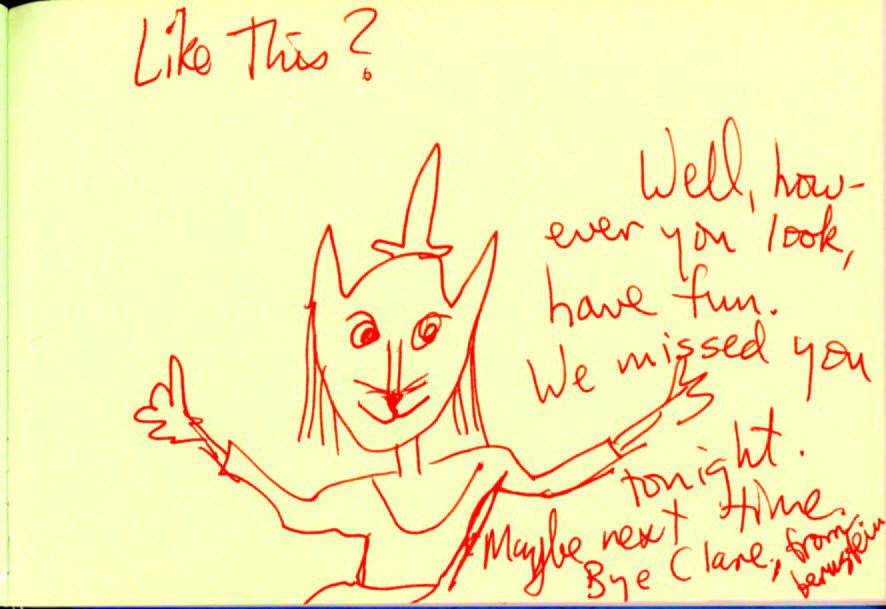 Like This?
Well, how-
ever you look,
have fun.
We missed you
tonight.
Maybe next time.
Bye Clare, from
bernstein